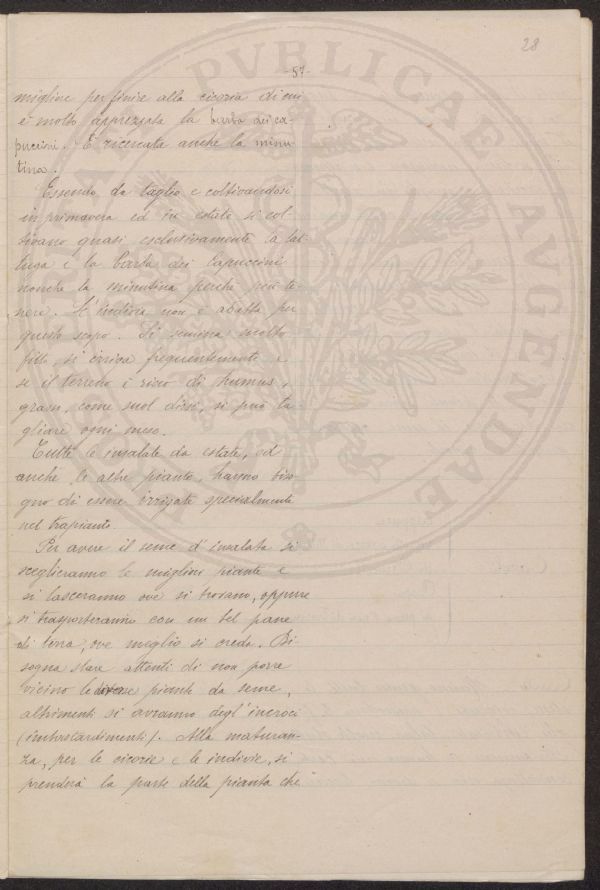 28
-57-
migliore per finire alla cicoria di cui
è molto apprezzata la barba dei ca-
puccini. È ricercata anche la minu-
tina.
Essendo da taglio e coltivandosi
in primavera ed in estate si col-
tivano quasi esclusivamente la lat-
tuga e la barba dei Capuccini
nonchè la minutina perchè più te-
nere. L'indivia non è adatta per
questo scopo. Si semina molto
fitto, si irriga frequentemente e
se il terreno è ricco di humus,
grasso, come suol dirsi, si può ta-
gliare ogni mese.
Tutte le insalate da estate, ed
anche le altre piante, hanno biso-
gno di essere irrigate specialmente
nel trapianto.
Per avere il seme d'insalata si
sceglieranno le migliori piante e
si lasceranno ove si trovano, oppure
si trasporteranno con un bel pane
di terra, ove meglio si creda. Bi-
sogna stare attenti di non porre
vicino le diverse piante da seme,
altrimenti si avranno degl'incroci
(imbastardimenti). Alla maturan-
za, per le cicorie e le indivie, si
prenderà la parte della pianta che
PVBLICAE
AVGENDAE